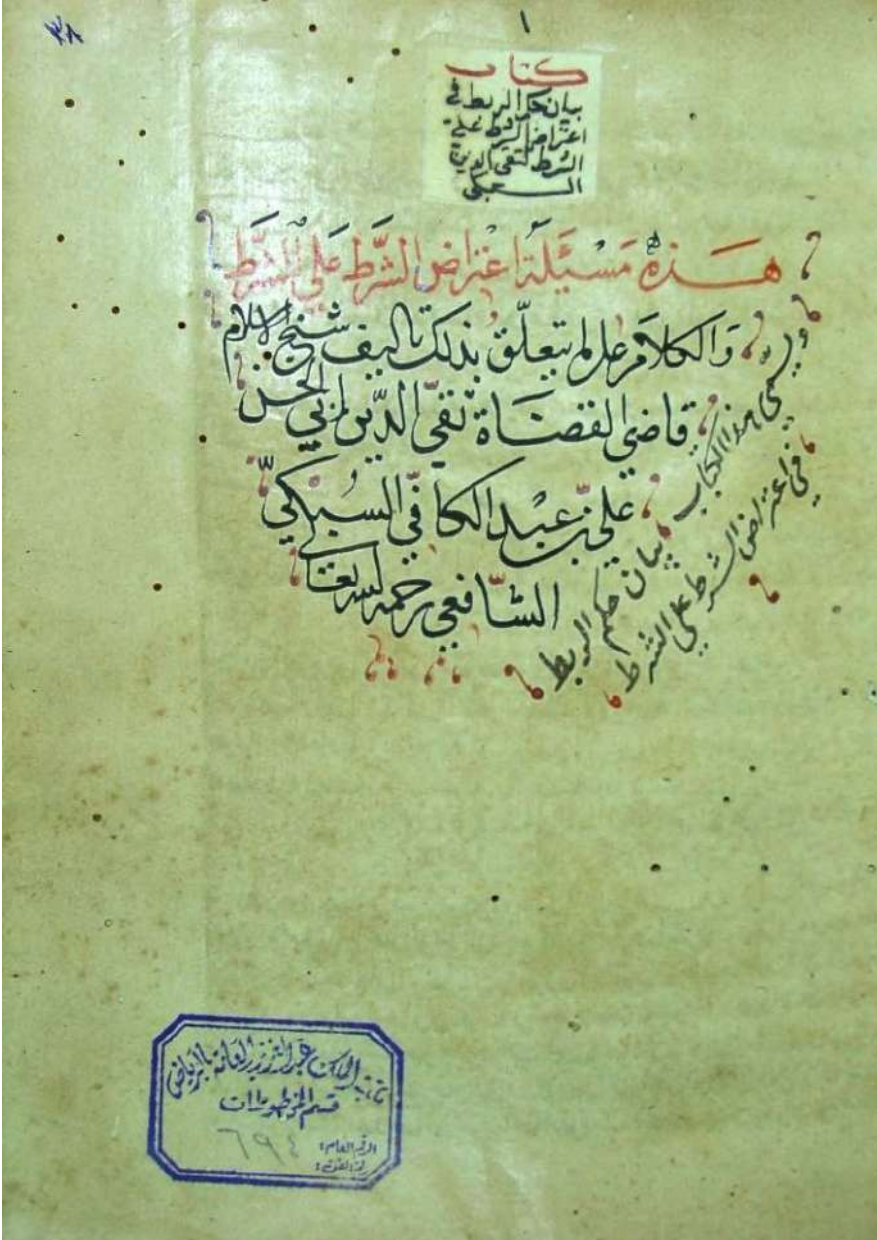 ٣٨
١
كتاب
بيان حكم الربط في
اعتراض الشرط على
الشرط لتقي الدين
السبكي
هَذِهِ مَسْئَلَة اعْتِرَاض الشَّرَط عَلَى الشَّرَط
وَالكَلَام عل ما يتعلّق بذلك تاليف شيخ الاسلام
قاضى القضَاة تقىّ الدّين ابي الحسن
علىّ بن عبْد الكافي السبْكيّ
الشّافعي رحمه الله تعَالى
ويسمّى هذا الكتاب بيان حكم الربط
في اعتراض الشرط على الشرط
مكتبة الملك عبد العزيز العامة بالرياض
قسم المخطوطات
الرقم العام: ٦٩٤